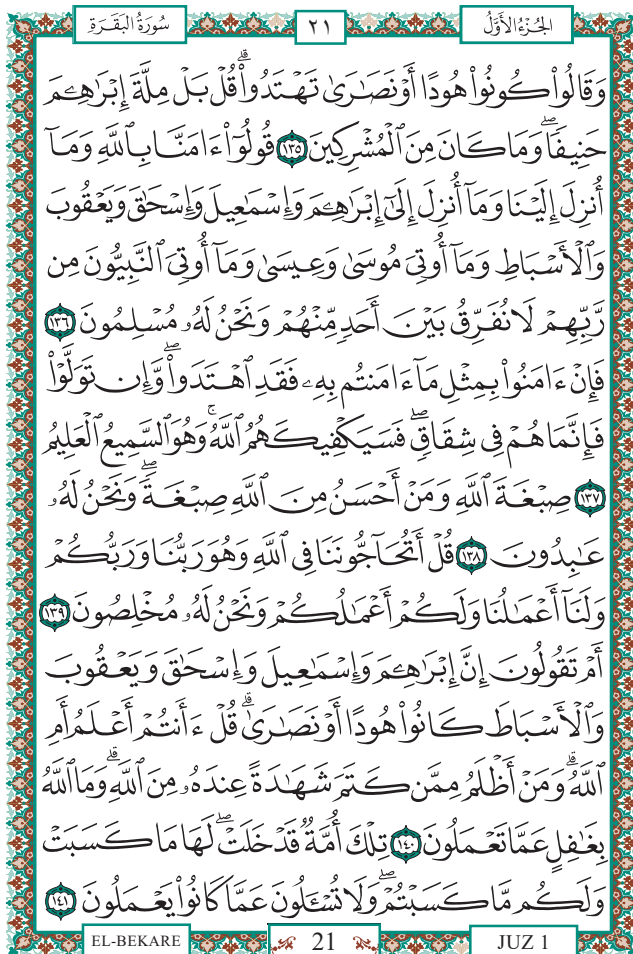 سُورَةُ البَقَرَةِ ٢١ الجُزْءُ الأَوَّلُ
وَقَالُوا۟ كُونُوا۟ هُودًا أَوْ نَصَٰرَىٰ تَهْتَدُوا۟ۗ قُلْ بَلْ مِلَّةَ إِبْرَٰهِـۧمَ
حَنِيفًاۖ وَمَا كَانَ مِنَ ٱلْمُشْرِكِينَ ١٣٥ قُولُوٓا۟ ءَامَنَّا بِٱللَّهِ وَمَآ
أُنزِلَ إِلَيْنَا وَمَآ أُنزِلَ إِلَىٰٓ إِبْرَٰهِـۧمَ وَإِسْمَٰعِيلَ وَإِسْحَٰقَ وَيَعْقُوبَ
وَٱلْأَسْبَاطِ وَمَآ أُوتِىَ مُوسَىٰ وَعِيسَىٰ وَمَآ أُوتِىَ ٱلنَّبِيُّونَ مِن
رَّبِّهِمْ لَا نُفَرِّقُ بَيْنَ أَحَدٍ مِّنْهُمْ وَنَحْنُ لَهُۥ مُسْلِمُونَ ١٣٦
فَإِنْ ءَامَنُوا۟ بِمِثْلِ مَآ ءَامَنتُم بِهِۦ فَقَدِ ٱهْتَدَوا۟ۖ وَّإِن تَوَلَّوْا۟
فَإِنَّمَا هُمْ فِى شِقَاقٍۖ فَسَيَكْفِيكَهُمُ ٱللَّهُۚ وَهُوَ ٱلسَّمِيعُ ٱلْعَلِيمُ
١٣٧ صِبْغَةَ ٱللَّهِ وَمَنْ أَحْسَنُ مِنَ ٱللَّهِ صِبْغَةًۖ وَنَحْنُ لَهُۥ
عَٰبِدُونَ ١٣٨ قُلْ أَتُحَآجُّونَنَا فِى ٱللَّهِ وَهُوَ رَبُّنَا وَرَبُّكُمْ
وَلَنَآ أَعْمَٰلُنَا وَلَكُمْ أَعْمَٰلُكُمْ وَنَحْنُ لَهُۥ مُخْلِصُونَ ١٣٩
أَمْ تَقُولُونَ إِنَّ إِبْرَٰهِـۧمَ وَإِسْمَٰعِيلَ وَإِسْحَٰقَ وَيَعْقُوبَ
وَٱلْأَسْبَاطَ كَانُوا۟ هُودًا أَوْ نَصَٰرَىٰۗ قُلْ ءَأَنتُمْ أَعْلَمُ أَمِ
ٱللَّهُۗ وَمَنْ أَظْلَمُ مِمَّن كَتَمَ شَهَٰدَةً عِندَهُۥ مِنَ ٱللَّهِۗ وَمَا ٱللَّهُ
بِغَٰفِلٍ عَمَّا تَعْمَلُونَ ١٤٠ تِلْكَ أُمَّةٌ قَدْ خَلَتْۖ لَهَا مَا كَسَبَتْ
وَلَكُم مَّا كَسَبْتُمْۖ وَلَا تُسْـَٔلُونَ عَمَّا كَانُوا۟ يَعْمَلُونَ ١٤١
EL-BEKARE 21 JUZ 1